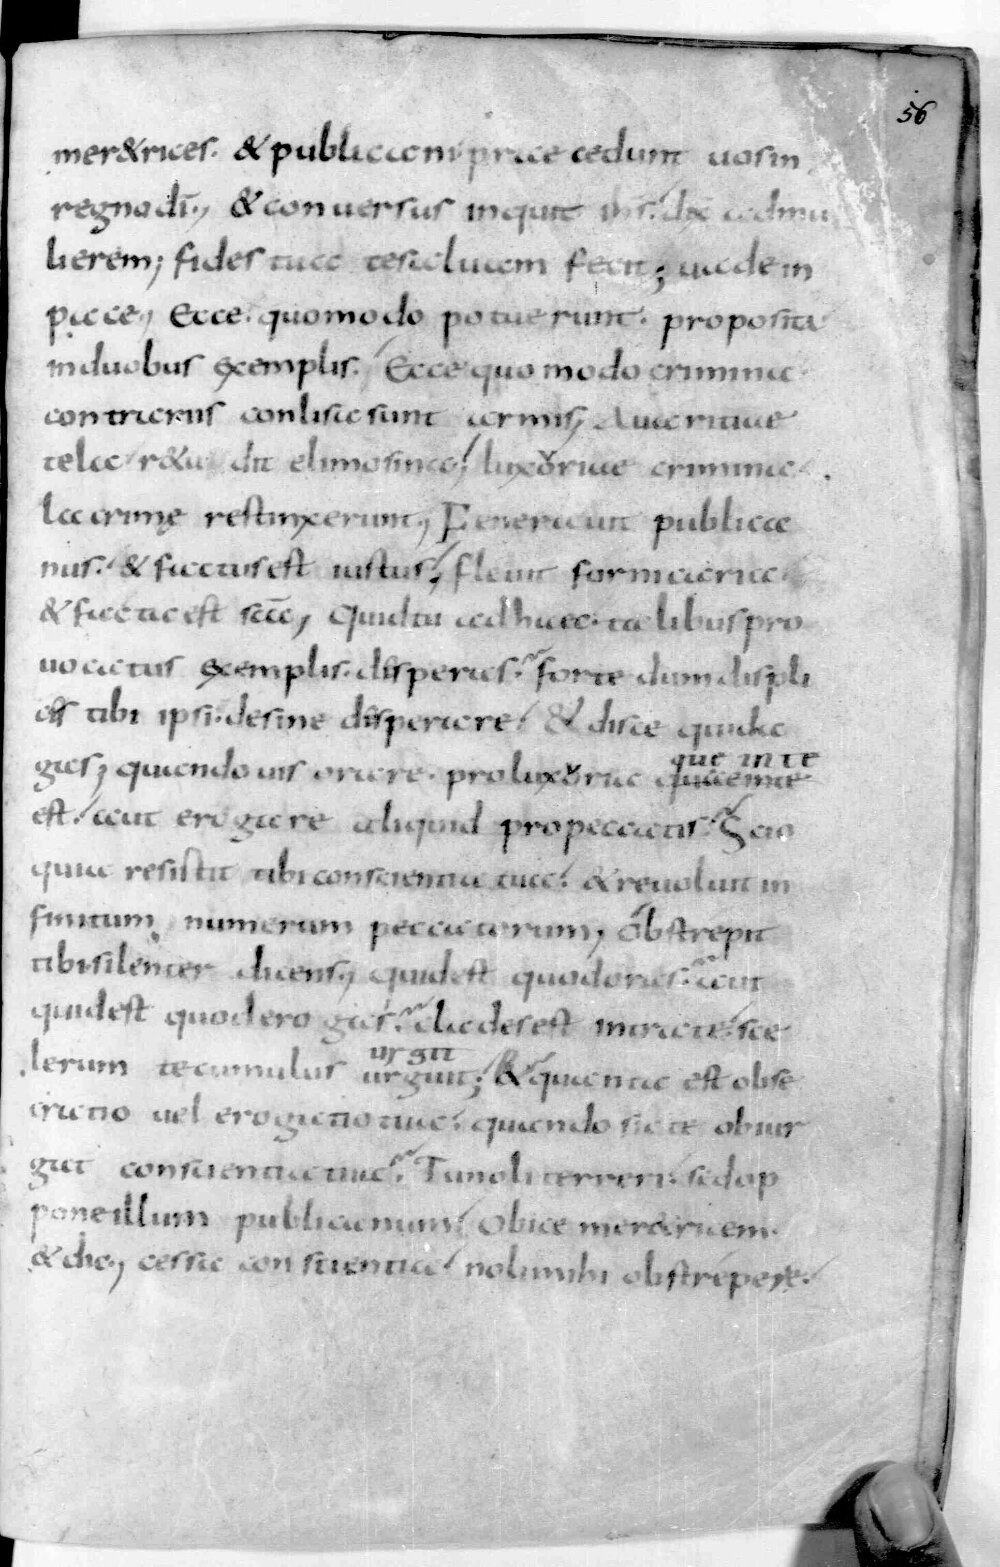 56
mer&rices. & publicani praecedunt uos in
regno dī., & conuersus inquit ihs. dix̄ ad mu
lierem; fides tua te saluam fecit; uade in
pace., Ecce quomodo potuerunt. proposita
in duobus exemplis. Ecce quomodo crimina
contrariis conlisa sunt armis; Auaritiae
tela r&u dit elimosina; luxoriae crimina
lacrime restinxerunt., Generauit publica
nus. & factus est iustus; fleuit fornicaria
& facta est scā, Quid tu adhuc. talibus pro
uocatus exemplis. disperas. forte dum displi
cis tibi ipsi. desine disperare. & disce quid a
gas; quando uis orare. pro luxoria
que in te
est. aut erogare aliquid pro peccatis. Scio
quia resistit tibi conscientia tua. & reuoluit in
finitum numerum peccatorum; Obstrepit
tibi silenter dicens., quid est quod oras. aut
quid est quod erogas. clades est in tracte. sce
urgit
lerum te cumulus urguit; & quanta est obse
cratio uel erogatio tua. quando sic te obiur
gat conscientia tua. Tu noli terreri. sed op
pone illum publicanum. Obice mer&ricem.
& dic., cessa conscientia. noli mihi obstrepere.